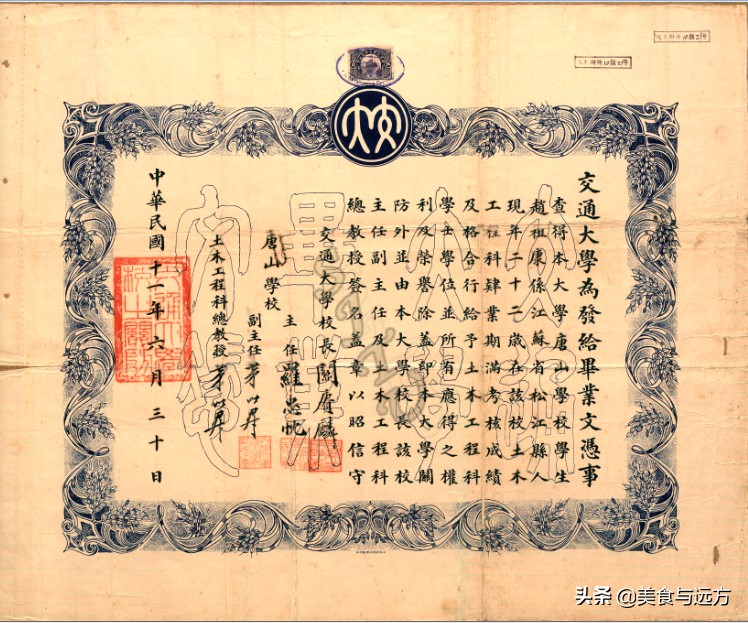 交大
交通大學為發給畢業文憑事
查得本大學唐山學校學生
趙祖康係江蘇省松江縣人
現年二十二歲在該校土木
工程科肄業期滿考核成績
及格合行給予土木工程科
學士學位並所有應得之權
利及榮譽除蓋印本大學關
防外並由本大學校長該校
主任副主任及土木工程科
總教授簽名蓋章以昭信守
交通大學校長 關賡麟
唐山學校
主任 羅忠忱
副主任 茅以昇
土木工程科總教授 茅以昇
中華民國十一年六月三十日
交通
大學
畢業
文憑
头条 @美食与远方